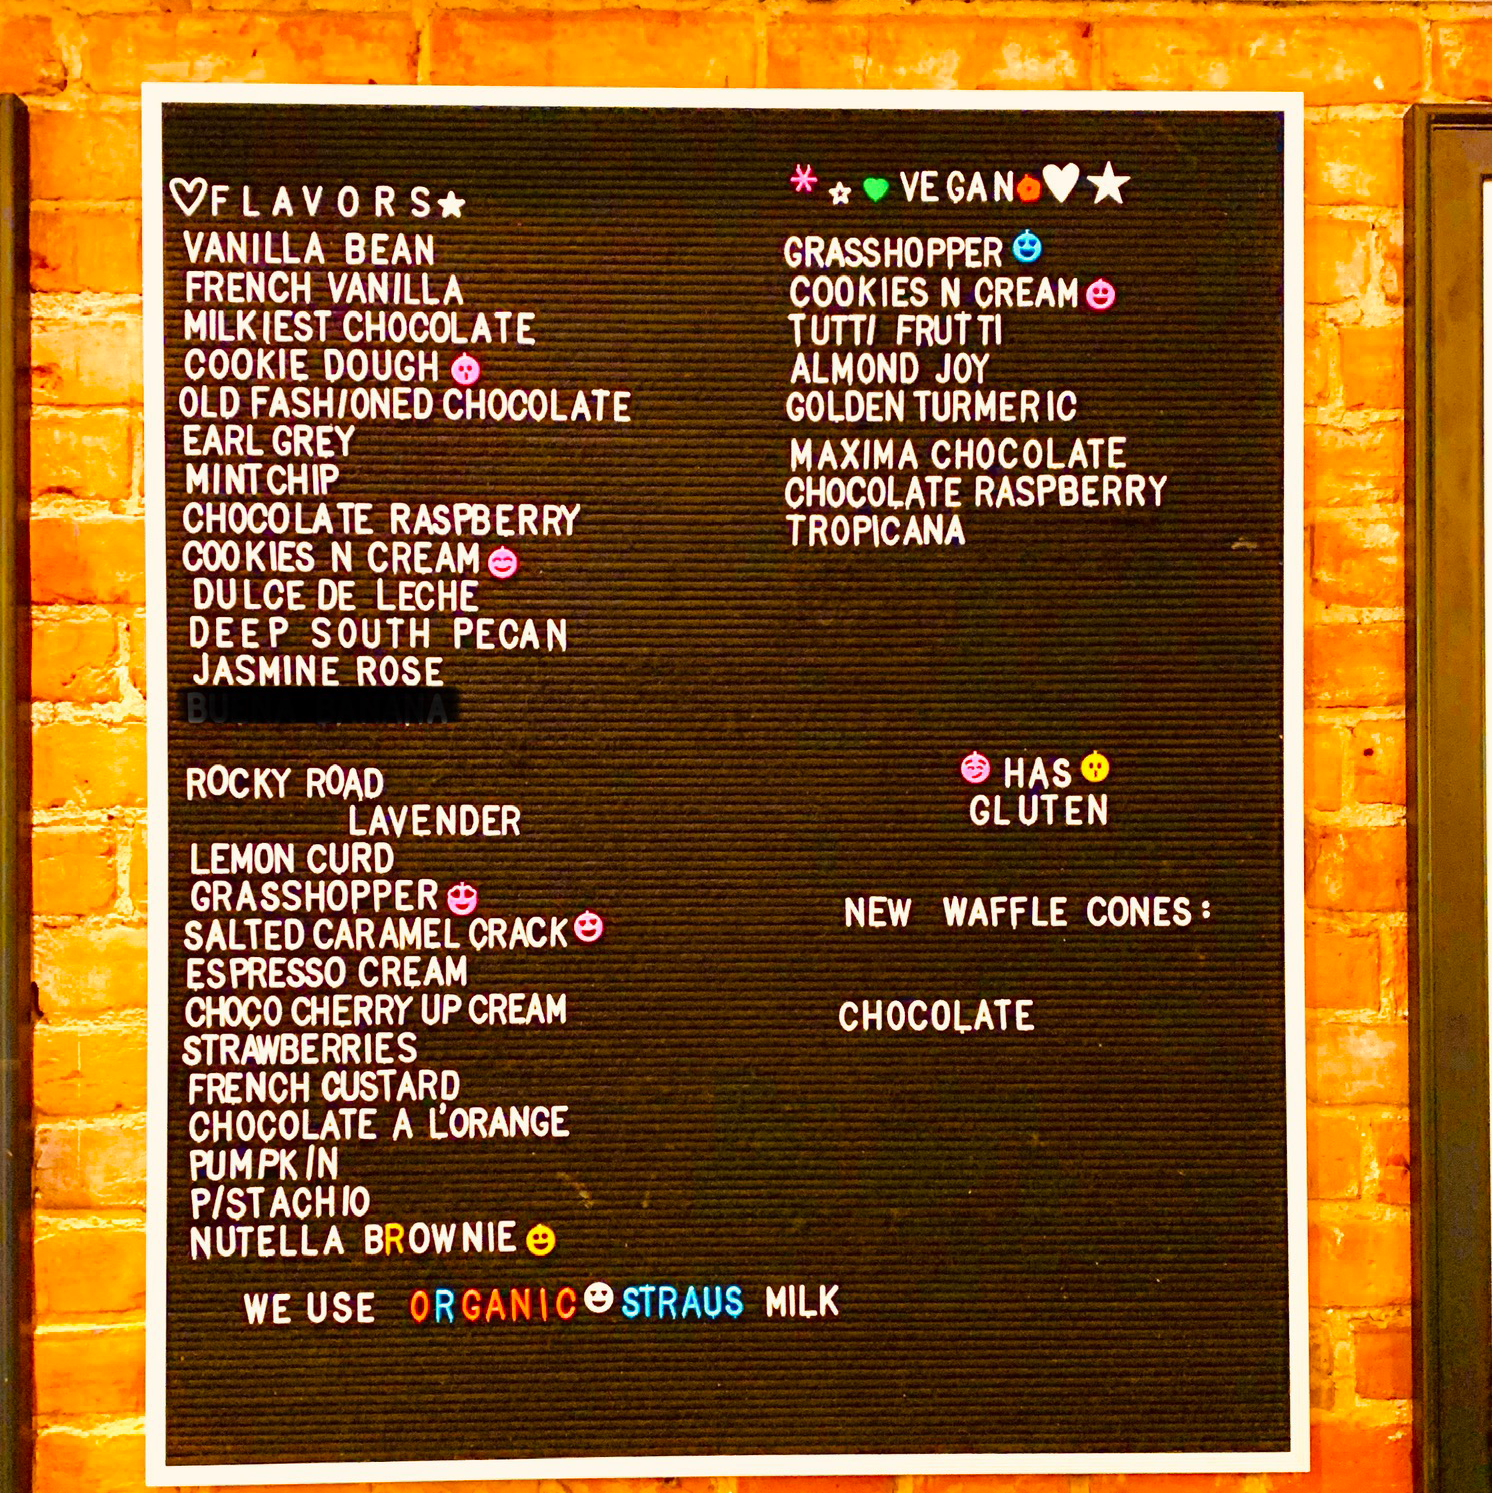 FLAVORS
VANILLA BEAN
FRENCH VANILLA
MILKIEST CHOCOLATE
COOKIE DOUGH
OLD FASHIONED CHOCOLATE
EARL GREY
MINT CHIP
CHOCOLATE RASPBERRY
COOKIES N CREAM
DULCE DE LECHE
DEEP SOUTH PECAN
JASMINE ROSE
ROCKY ROAD
LAVENDER
LEMON CURD
GRASSHOPPER
SALTED CARAMEL CRACK
ESPRESSO CREAM
CHOCO CHERRY UP CREAM
STRAWBERRIES
FRENCH CUSTARD
CHOCOLATE A L'ORANGE
PUMPKIN
PISTACHIO
NUTELLA BROWNIE
WE USE ORGANIC STRAUS MILK
VEGAN
GRASSHOPPER
COOKIES N CREAM
TUTTI FRUTTI
ALMOND JOY
GOLDEN TURMERIC
MAXIMA CHOCOLATE
CHOCOLATE RASPBERRY
TROPICANA
HAS
GLUTEN
NEW WAFFLE CONES:
CHOCOLATE